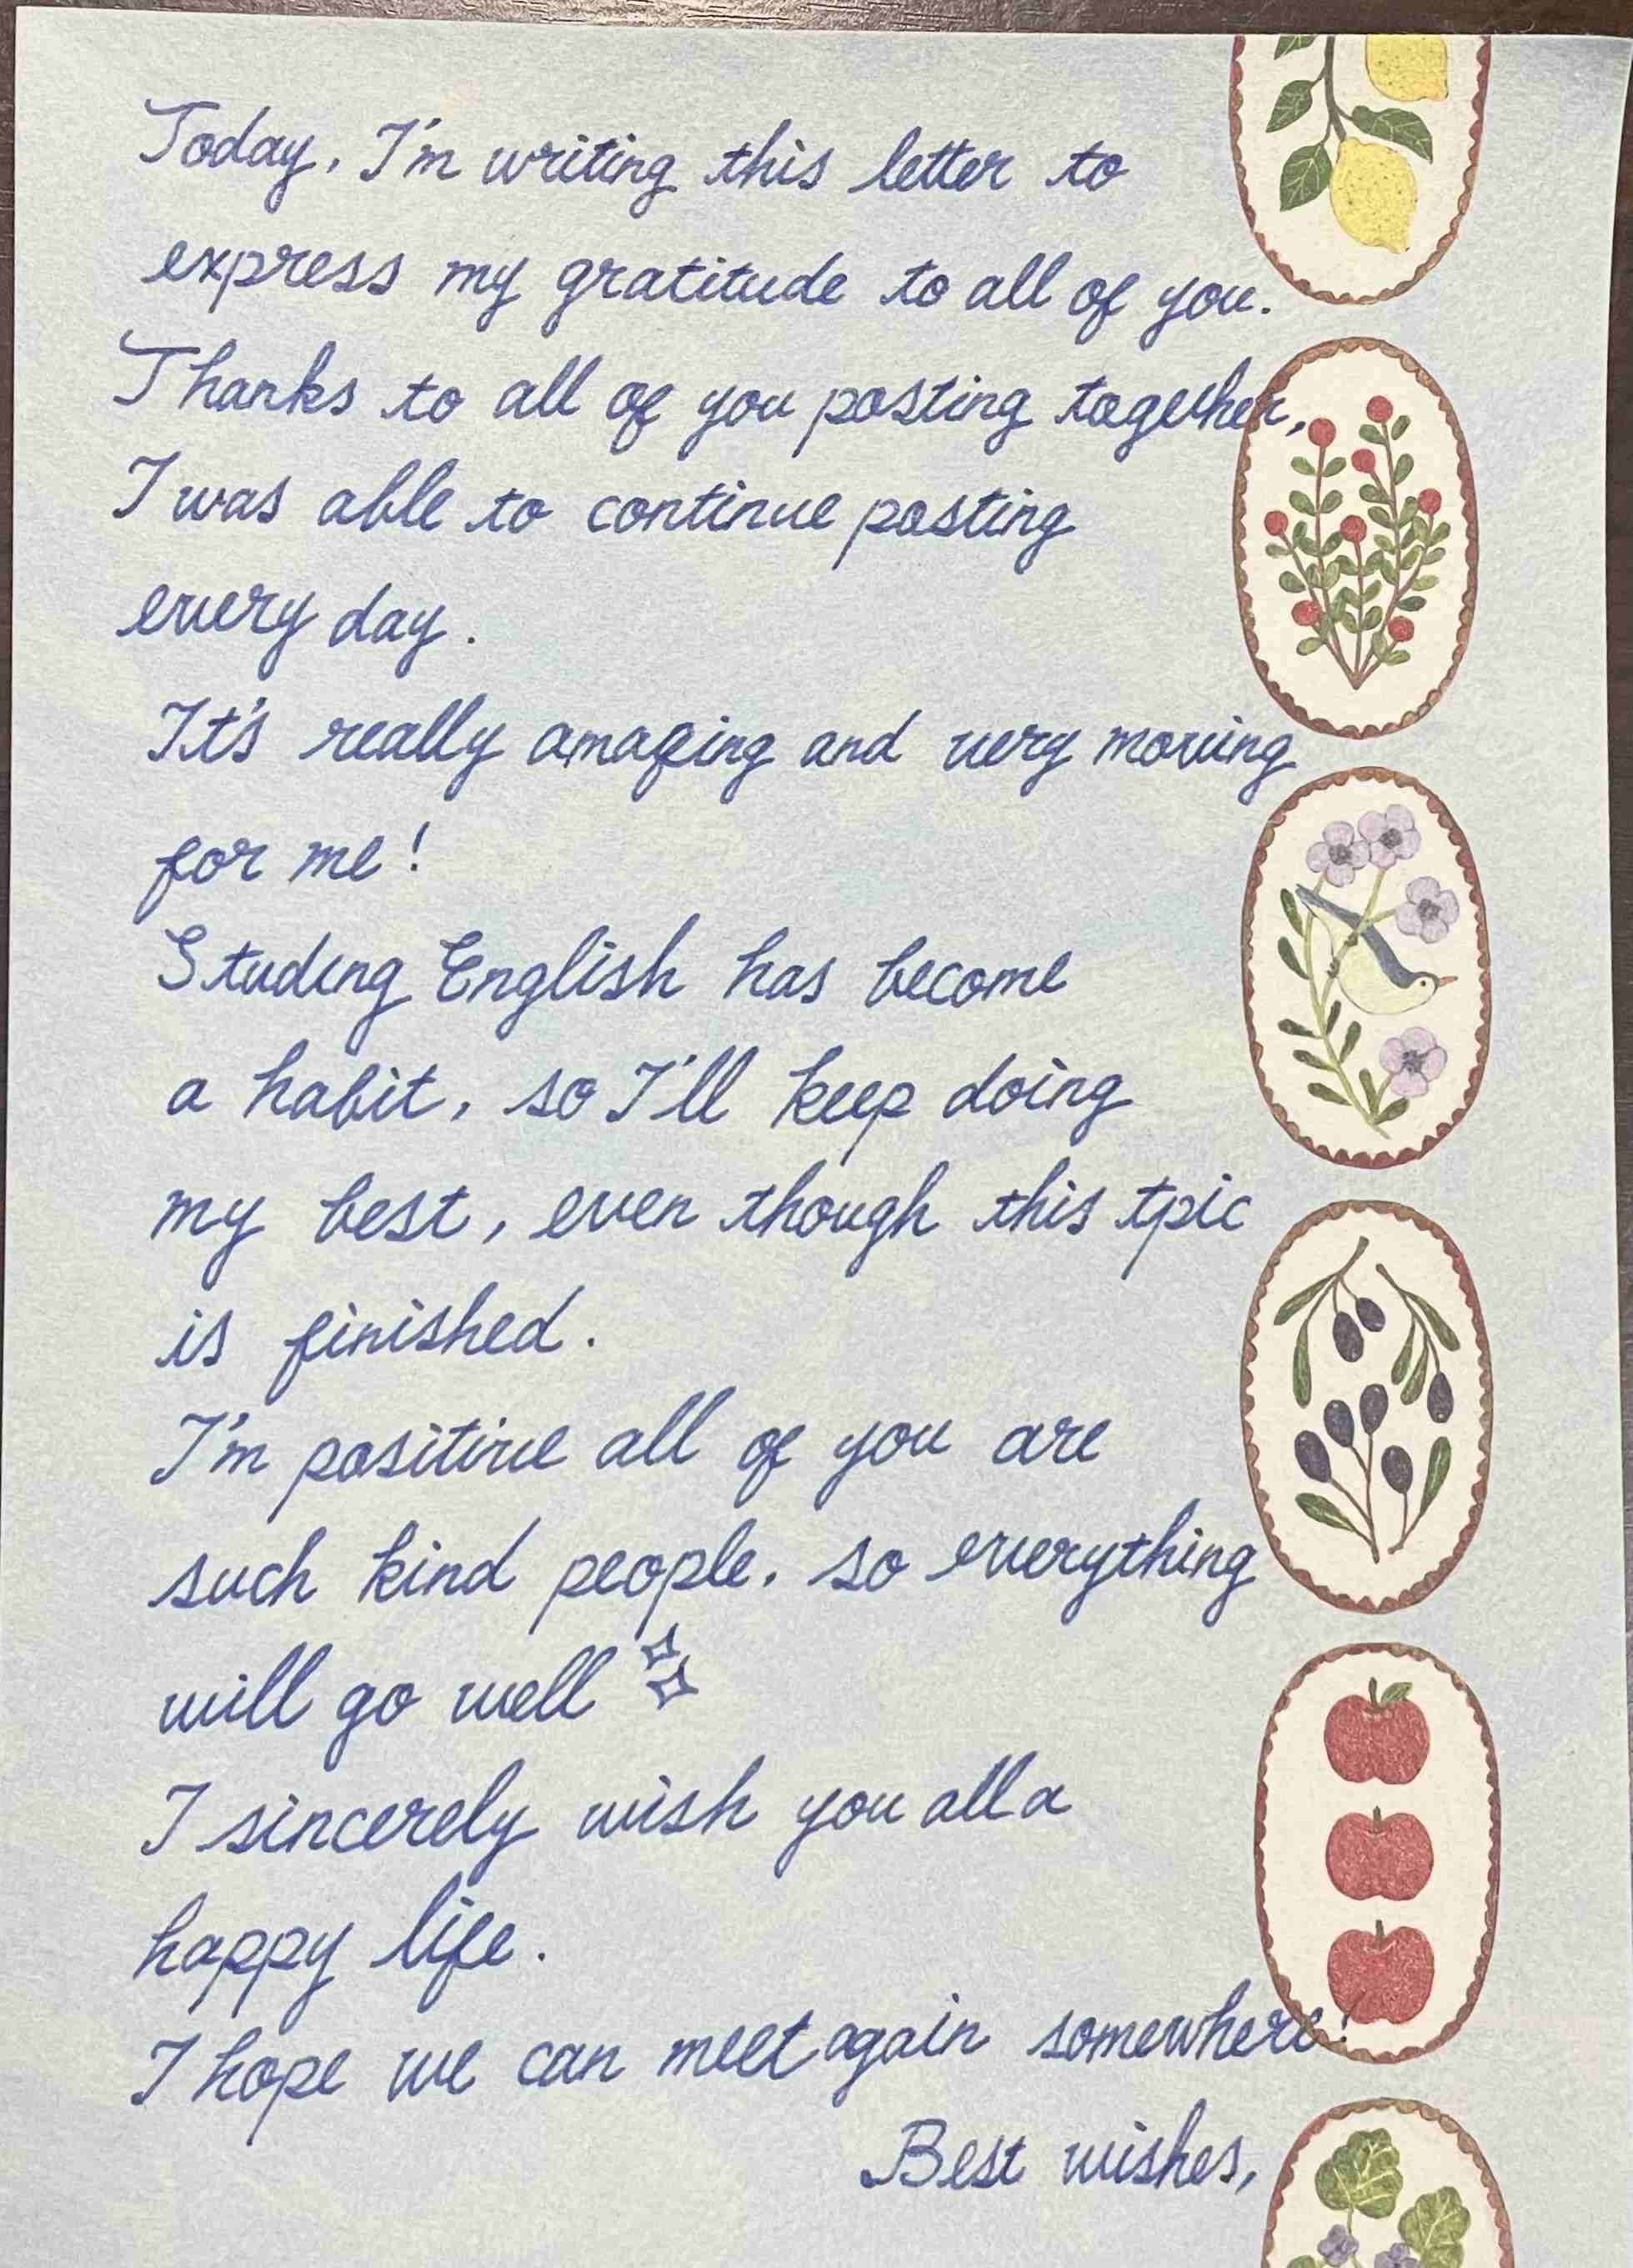 Today, I'm writing this letter to
express my gratitude to all of you.
Thanks to all of you posting together,
I was able to continue posting
every day.
It's really amazing and very moving
for me!
Studing English has become
a habit, so I'll keep doing
my best, even though this tpic
is finished.
I'm positive all of you are
such kind people. so everything
will go well
I sincerely wish you all a
happy life.
I hope we can meet again somewhere!
Best wishes,